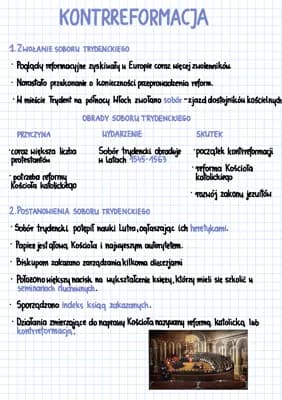 KONTRREFORMACJA
1. ZWOŁANIE SOBORU TRYDENCKIEGO
· Poglądy reformacyjne zyskiwały w Europie coraz więcej zwolenników.
· Narastało przekonanie o konieczności przeprowadzenia reform.
· W mieście Trydent na północy Włoch zwołano sobór - zjazd dostojników kościelnych
OBRADY SOBORU TRYDENCKIEGO
PRZYCZYNA WYDARZENIE SKUTEK
· coraz większa liczba
protestantów
· potrzeba reformy
Kościoła katolickiego
Sobór trydencki obraduje
w latach 1545-1563
· początek kontrreformacji
· reforma Kościoła
katolickiego
· rozwój zakonu jezuitów
2. POSTANOWIENIA SOBORU TRYDENCKIEGO
· Sobór trydencki potępił nauki Lutra, ogłaszając ich heretykami.
· Papież jest głową Kościoła i najwyższym autorytetem.
· Biskupom zakazano zarządzania kilkoma diecezjami
· Położono większy nacisk na wykształcenie księży, którzy mieli się szkolić w
seminariach duchownych.
· Sporządzono indeks ksiąg zakazanych.
· Działania zmierzające do naprawy Kościoła nazywamy reformą katolicką lub
kontrreformacją.